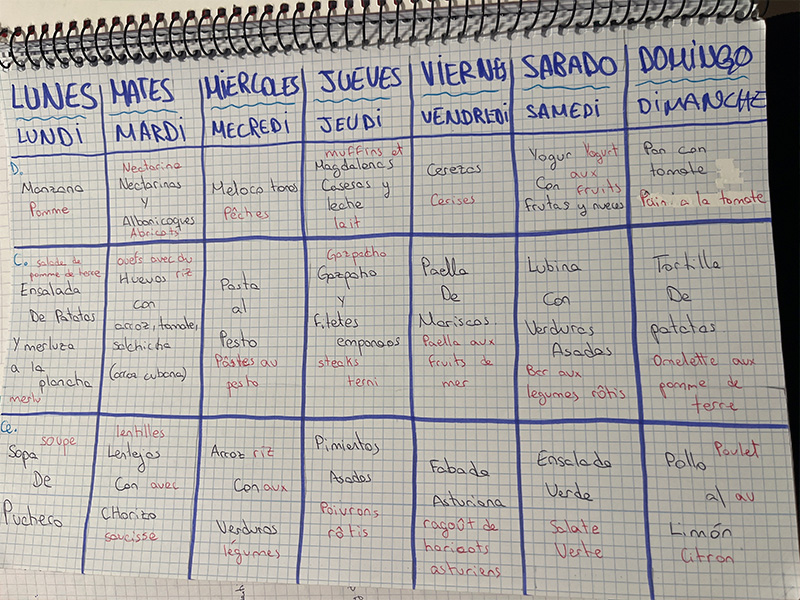 LUNES MATES MIERCOLES JUEVES VIERNES SABADO DOMINGO
LUNDI MARDI MECREDI JEUDI VENDREDI SAMEDI DIMANCHE
D.
Manzana
Pomme
Nectarine
Nectarinas
y
Albaricoques
Abricots
Melocotones
Pêches
muffins et
Magdalenas
Caseras y
leche
lait
Cerezas
Cerises
Yogur Yogurt
Con aux
fruits
frutas y nueces
Pan con
tomate
Pain a la tomate
C. salade de
pomme de terre
Ensalada
De Patatas
y merluza
a la
plancha
merlu
oeufs avec du
Huevos riz
con
arroz, tomate,
salchicha
(arroz cubana)
Pasta
al
Pesto
Pâstes au
pesto
Gazpacho
Gazpaho
y
Filetes
empanaos
steaks
terni
Paella
De
Mariscos.
Paella aux
fruits de
mer
Lubina
Con
Verduras
Asadas
Bar aux
légumes rôtis
Tortilla
De
patatas
Omelette aux
pomme de
terre
Ce.
soupe
Sopa
De
Puchero
lentilles
Lentejas
Con avec
CHorizo
saucisse
Arroz riz
Con aux
Verduras
légumes
Pimientos
Asados
Poivrons
rôtis
Fabada
Asturiana
ragoût de
haricots
asturiens
Ensalada
Verde
Salate
Verte
Pollo Poulet
al au
Limón
Citron